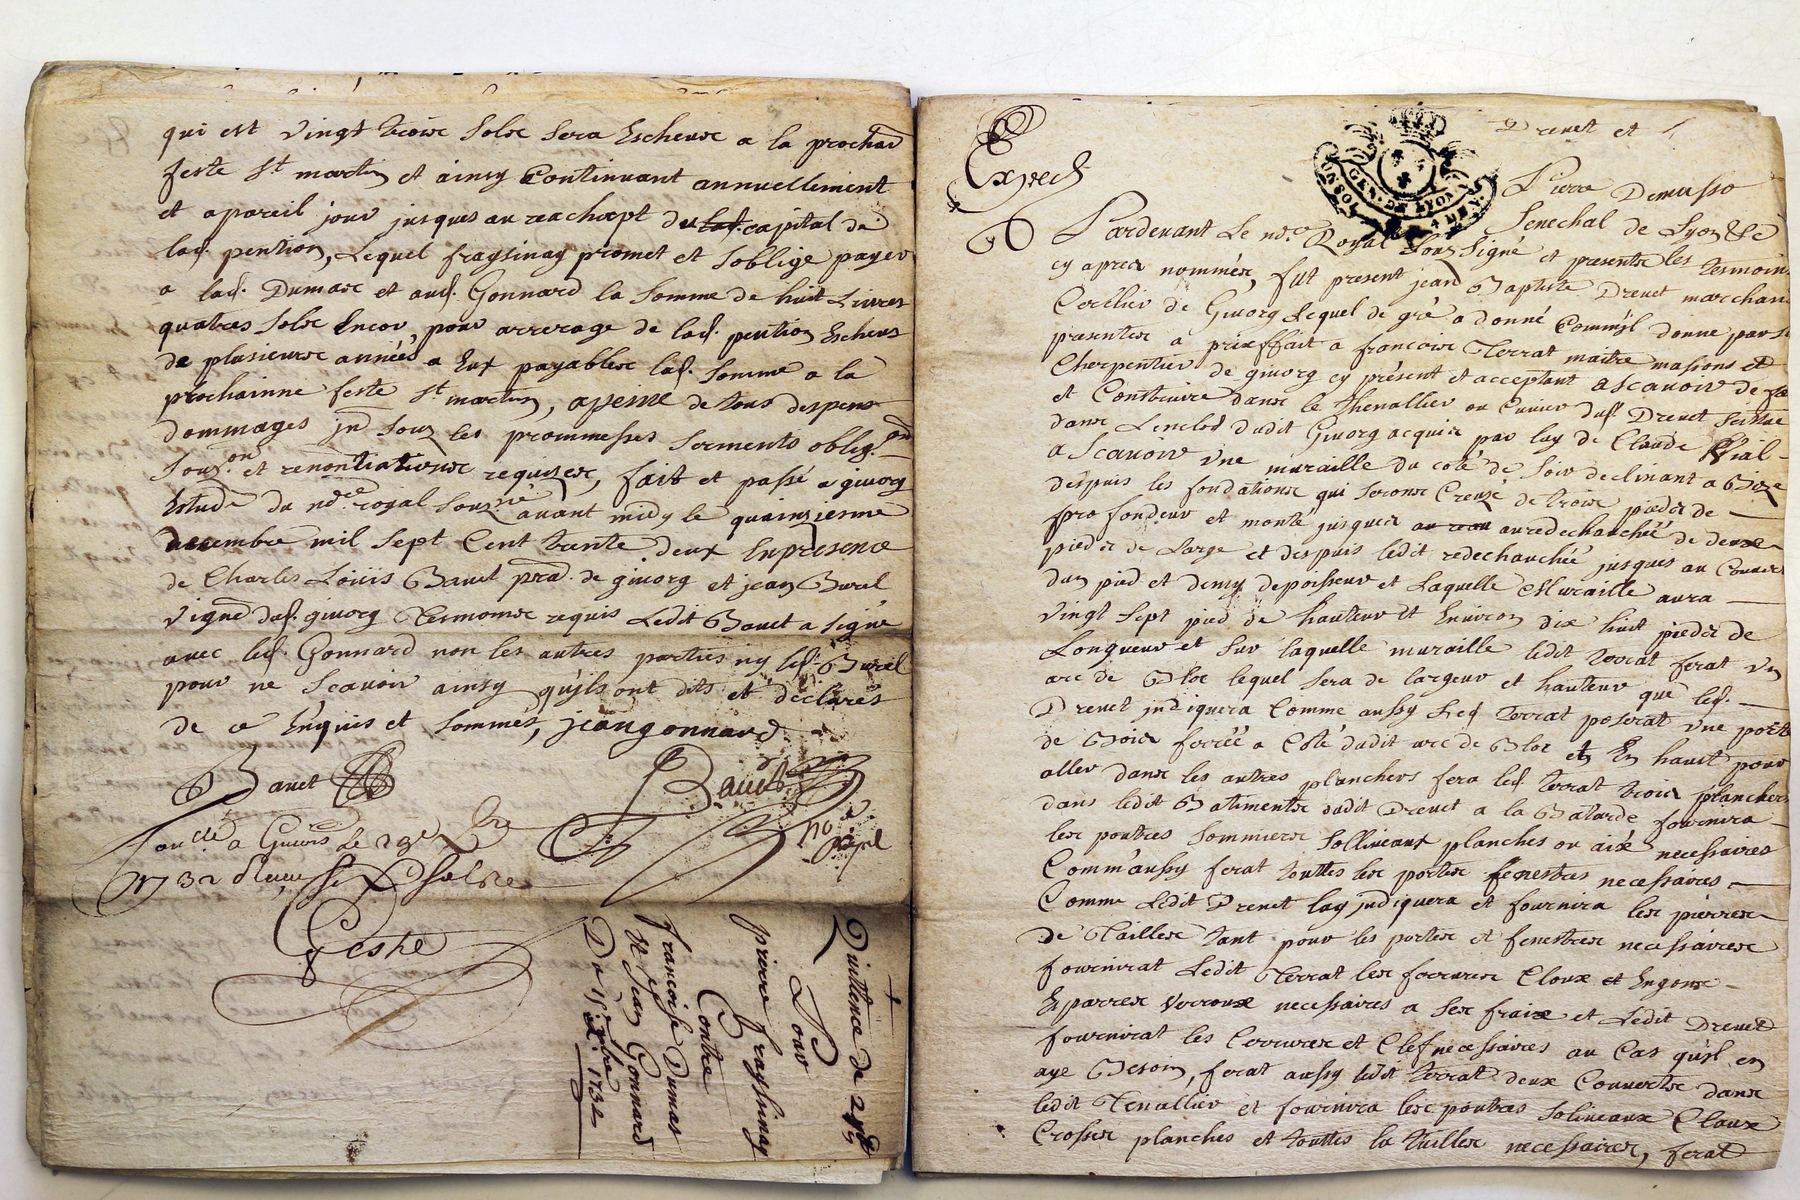 qui est vingt trois sols sera Escheue a la prochai
feste St martin et ainsy Continuant annuellement
et apareil jour jusques au reachapt du capital de
lad. pention, Lequel fraysinay promet et soblige payer
a lad. Dumas et aud. Gonnard la somme de huit Livres
quatres sols Encor, pour arrerage de lad. pention Escheus
de plusieurs années a Eux payables lad. somme a la
prochainne feste St martin, apeine de tous despens
dommages jn sous les prommesses serments oblig.on
sous.on et renontiations requises, fait et passé a givorg
Estude du no.re royal sous.né avant midy le quainsiesme
decembre mil sept Cent trente deux Enpresence
de Charles Loüis Bauet prad. de givorg et jean Burel
vigne.d dud. givorg Tesmoins requis Ledit Bauet a signé
avec led. Gonnard non les autres parties ny led. Burel
pour ne scavoir ainsy qu'ils ont dits et déclarés
de ce Enquis et sommés, jeangonnard
Bauet
Bauet
no.re Royal
a Givors le 29e Xbre
1732
Geste
Quittence de
Pour
pierre fraysinay
Contre
francoise Dumas
et Jean Gonnard
Du 15e Xbre 1732
Exped.
Drevet et
GEN. DE LYON
Pierre Demusso
Senechal de Lyon &c
Pardevant Le no.re Royal sous signé et presents les tesmoins
cy apres nommés, fut present jean Baptiste Drevet marchan
de Givorg Lequel de gré a donné Comm'jl donne par
presentes a prixffait a francois Terrat maitre massons et
Cherpentier de givorg cy présent et acceptant ascavoir de
et Construire dans le Thenallier ou Cuvier dud. Drevet
dans Lenclos dudit Givorg acquis par luy de Claude Vial
a Scavoir vne muraille du coté de soir declinant a Bize
despuis les fondations qui serons Creusé de trois pieds de
profondeur et monté jusques au redechauchée de deux
pieds de Large et despuis ledit redechauchée jusques au Couvert
dun pied et demy depoisseur et Laquelle Muraille aura
vingt sept pied de hauteur et Environ dix huit pieds de
Longueur et sur laquelle muraille ledit terrat ferat vn
arc de Bloc lequel sera de largeur et hauteur que led.
Drevet jndiquera Comme aussy led terrat poserat vne porte
de Bois ferréé a Coté dudit arc de Bloc et En haut pour
aller dans les autres planchers fera led. terrat trois planchers
dans ledit Batiments dudit Drevet a la Batarde fournira
les poutres sommiers sollineaux planches ou aix necessaires
Comm'aussy ferat touttes les portes fenestres necessaires
Comme Ledit Drevet luy jndiquera et fournira les pierres
de Tailles tant pour les portes et fenestres necessaires
fournirat Ledit Terrat les ferrures Cloux et Engons
Esparres verroux necessaires a ses fraix et Ledit Drevet
fournirat les Cerrures et Clef necessaires au Cas qu'jl en
aye Besoin, ferat aussy ledit terrat deux Couverts dans
ledit Tenallier et fournira les poutres solineaux Cloux
Crosses planches et touttes la tuilles necessaires, ferat